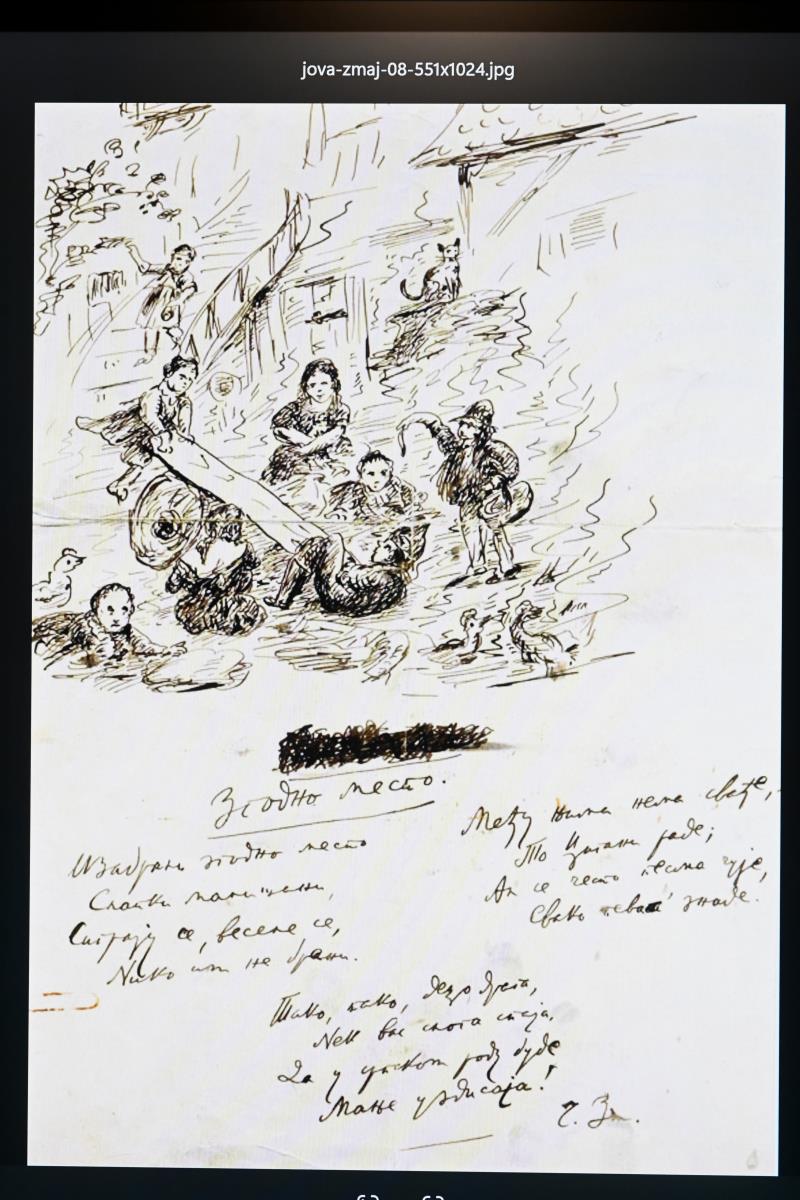 jova-zmaj-08-551x1024.jpg
Згодно место.
Изабрали згодно место
Слатки малишани,
Играју се, веселе се,
Нико им не брани.
Међу њима нема свађе,
То Цигани раде;
Ал се често песма чује,
Свако певат' знаде.
Тако, тако, децо драга,
Нек вас слога спаја,
Да у српском роду буде
Мање уздисаја!
Ч. З.